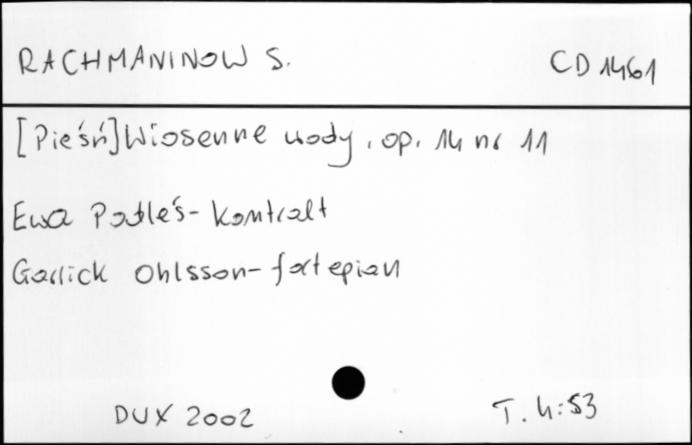 RACHMANINOW S. CD 1461
[Pieśń] Wiosenne wody, op. 14 nr 11
Ewa Podleś - kontralt
Garrick Ohlsson - fortepian
DUX 2002 T. 4:53